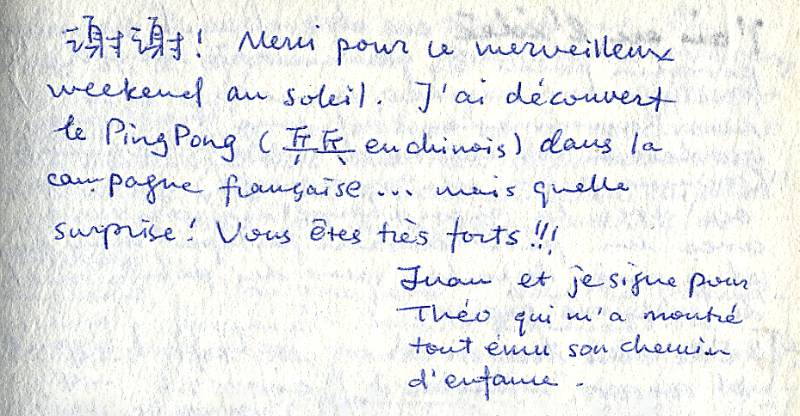 謝謝! Merci pour ce merveilleux
weekend au soleil. J'ai découvert
le PingPong (乒乓 en chinois) dans la
campagne française... mais quelle
surprise! Vous êtes très forts!!!
Juan et je signe pour
Théo qui m'a montré
tout ému son chemin
d'enfance.